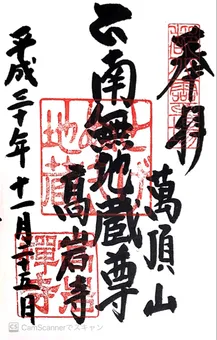 奉拝
萬頂山
南無地蔵尊
高岩寺
平成三十年十一月二十五日
CS CamScannerでスキャン